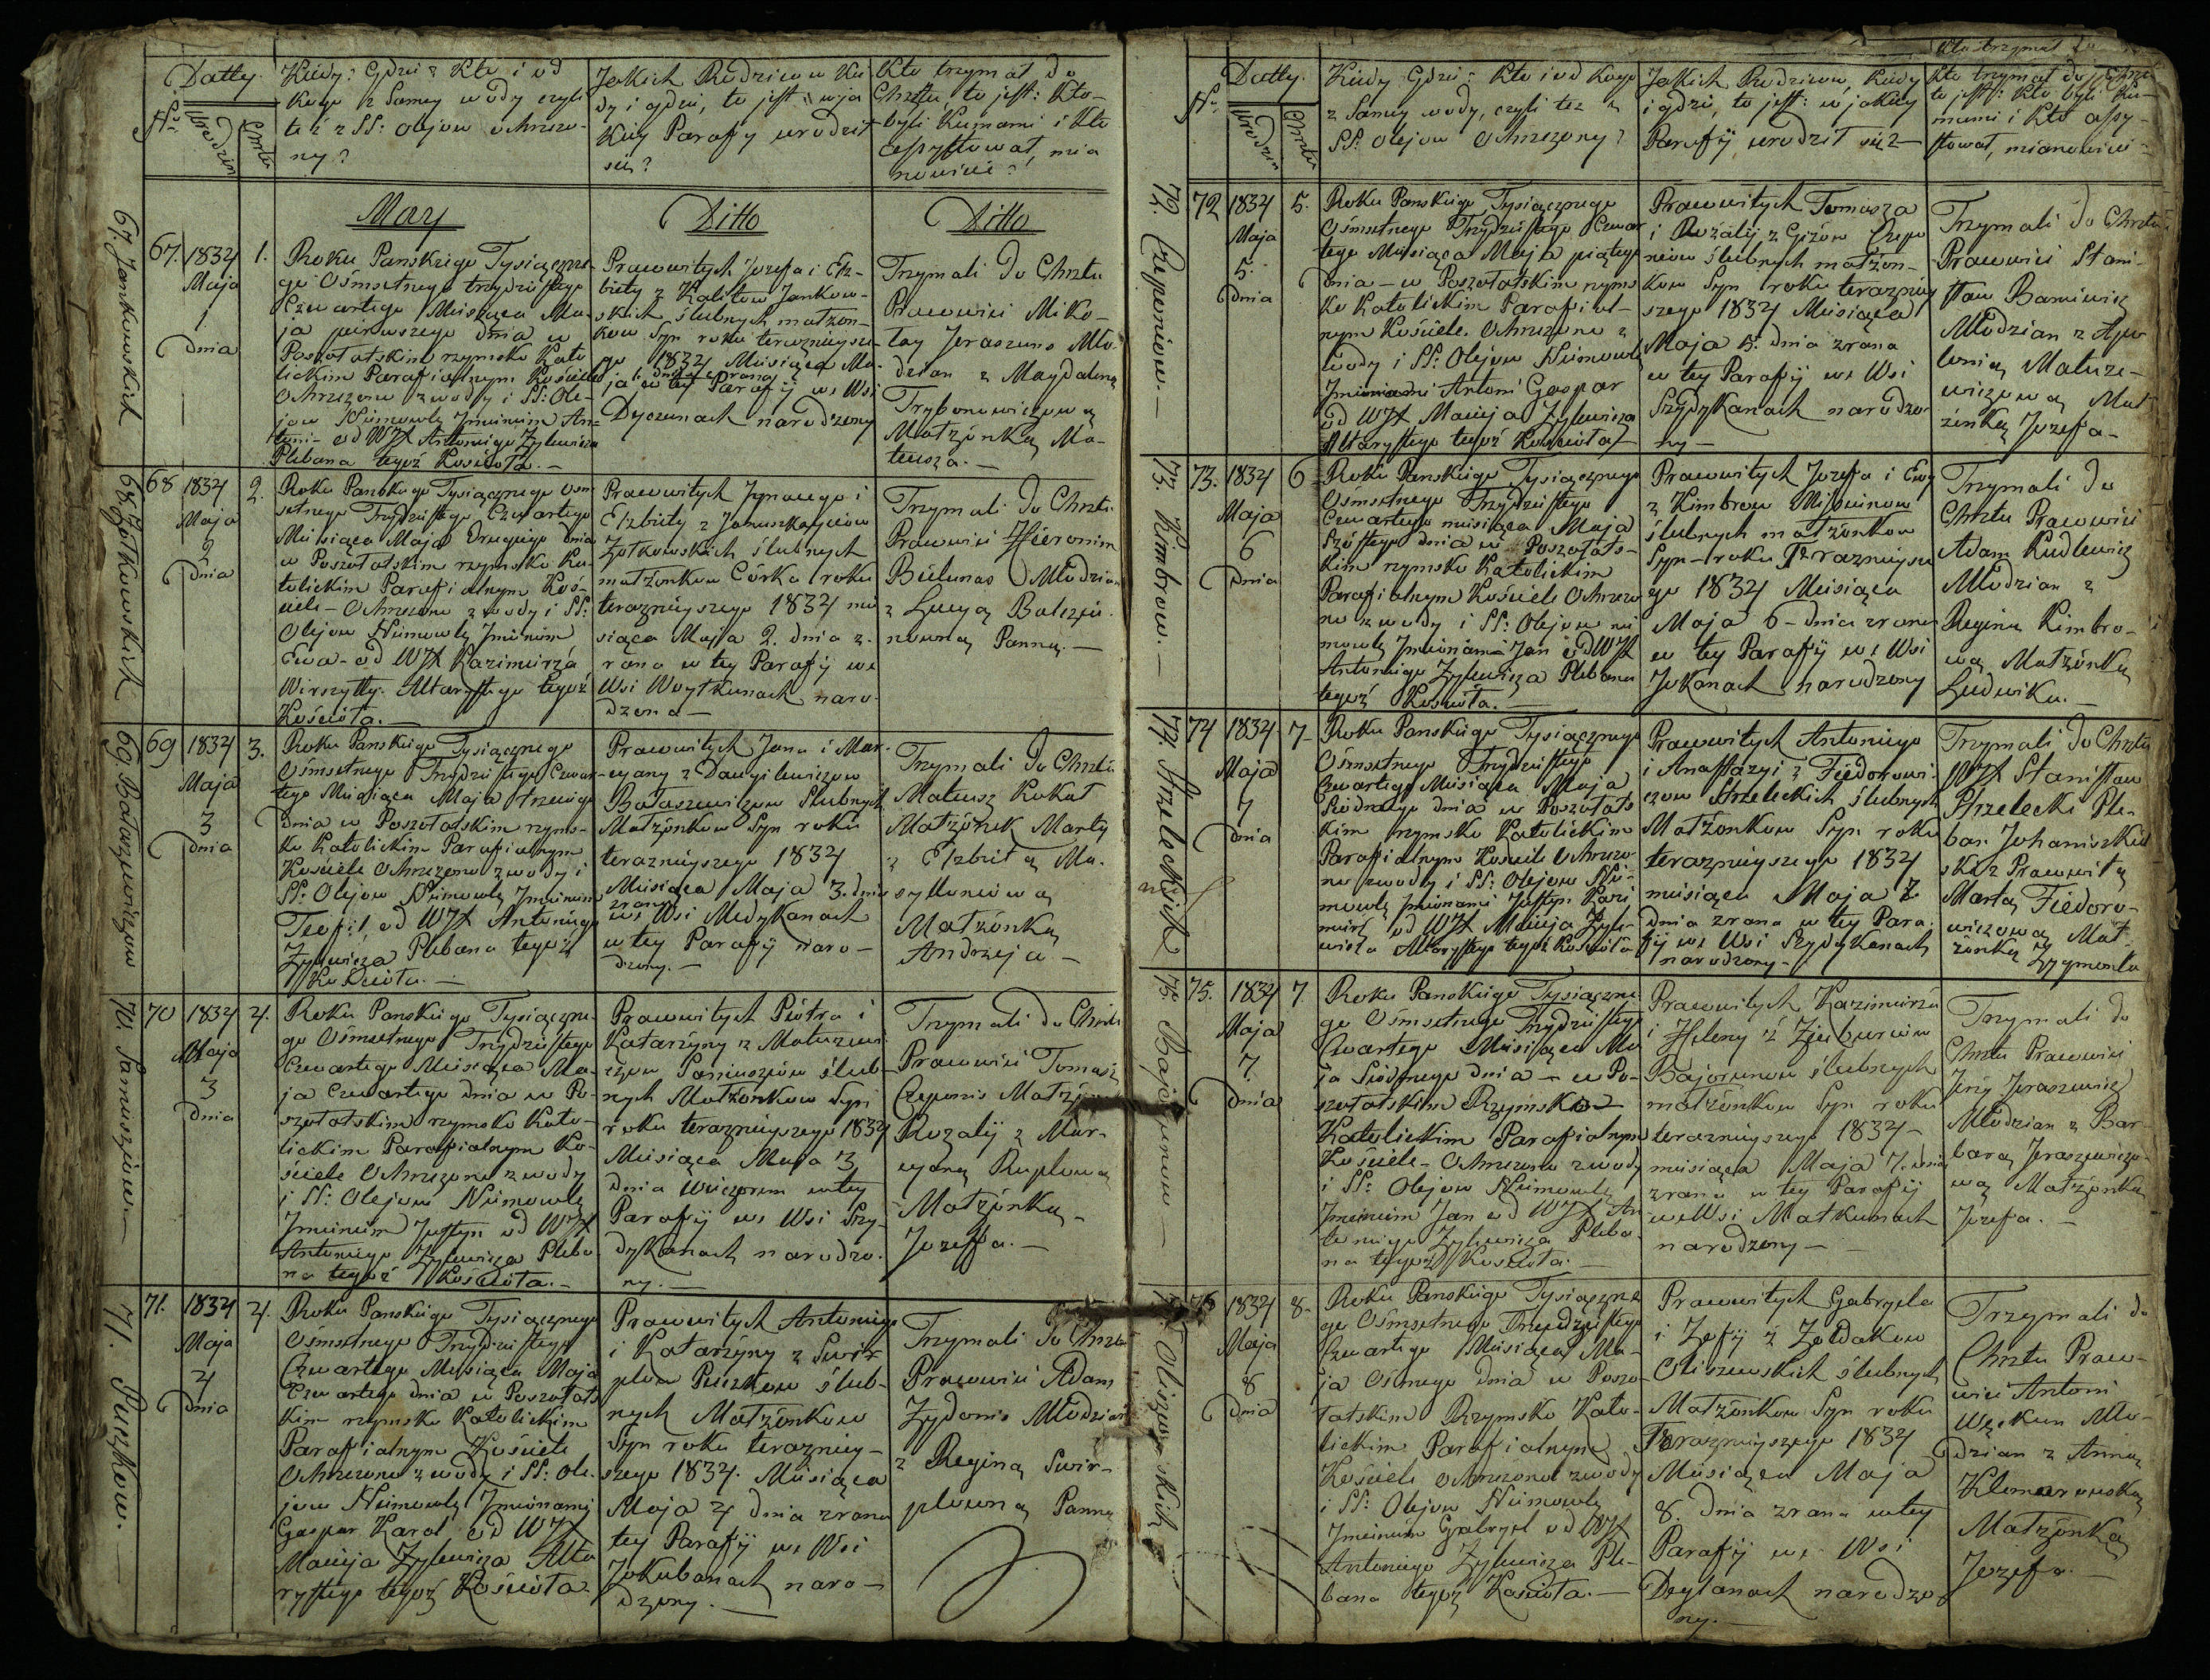 Datty.
No
Urodzin
Chrztu
Kiedy? Gdzie? Kto i od
Kogo z Samey wody czyli
też z SS: olejow ochrzczo-
ny?
Jakich Rodzicow Kie
dy i gdzie, to jest: w ja
Kiey Parafy urodził
się?
Kto trzymał do
Chrztu, to jest: Kto
byli Kumami i Kto
assystował, mia
nowicie?
May
Ditto
Ditto
67. Jankowskich
67.
1834
Maja
1
dnia
1.
Roku Panskiego Tysiączne-
go Ośmsetnego trzydziestego
Czwartego Miesiąca Ma-
ja pierwszego dnia w
Poszołatskim rzymsko Kato
lickim Parafialnym Kościele
Ochrzczono z wody i SS: Ole-
jow Niemowlę Jmieniem An-
toni - od WJX Antoniego Zylewicza
Plebana tegoż Kościoła. -
Prawowitych Jozefa i Elż-
biety z Kalitow Jankow-
skich ślubnych małżon-
kow Syn roku teraznieysze-
go 1834 Miesiąca Ma-
1. dnia z rana
ja w tey Parafij we Wsi
Dyczunach narodzony
Trzymali do Chrztu
Prawowici Miko-
łay Jeraszuns Mło-
dzian z Magdaleną
Trybonowiczową
Małżonką Ma-
teusza. -
68 Żołkowskich
68
1834
Maja
2
dnia
2.
Roku Panskiego Tysiącznego Ośm
setnego Trzydziestego Czwartego
Miesiąca Maja Drugiego dnia
w Poszołatskim rzymsko Ka-
tolickim Parafialnym Koś-
ciele - Ochrzczono z wody i SS:
Olejow Niemowlę Jmieniem
Ewa - od WJX Kazimierza
Wirszyłły. Altarystego tegoż
Kościoła. -
Prawowitych Jgnacego i
Elżbiety z Januszkayciow
Żołkowskich ślubnych
małżonkow Córka roku
teraznieyszego 1834 mie
siąca Maja 2. dnia z-
rana w tey Parafij we
Wsi Woytkunach naro-
dzona -
Trzymali do Chrztu
Prawowici Hieronim
Bielunas Młodzian
z Łucyą Balczu-
nowną Panną. -
69 Bałaszewiczow
69
1834
Maja
3
dnia
3.
Roku Panskiego Tysiącznego
Ośmsetnego Trzydziestego Czwar-
tego Miesiąca Maja trzeciego
dnia w Poszołatskim rzyms-
ko Katolickim Parafialnym
Kościele Ochrzczono z wody i
SS: Olejow Niemowlę Jmieniem
Teofil od WJX Antoniego
Zylewicza Plebana tegoż
Kościoła. -
Prawowitych Jana i Mar-
cyany z Daugilewiczow
Bałaszewiczow Slubnych
Małżonkow Syn roku
teraznieyszego 1834
Miesiąca Maja 3. dnia
zrana
we Wsi Medykanach
w tey Parafij naro-
dzony. -
Trzymali do Chrztu
Mateusz Kukał
Małżonek Marty
z Elżbietą Ma-
syłluniową
Małżonką
Andrzeja -
70. Saniuszjow. -
70
1834
Maja
3
dnia
4.
Roku Panskiego Tysiączne-
go Ośmsetnego Trzydziestego
Czwartego Miesiąca Ma-
ja Czwartego dnia w Po-
szołatskim rzymsko Kato-
lickim Parafialnym Ko-
ściele Ochrzczono z wody
i SS: Olejow Niemowlę
Jmieniem Justyn od WJX
Antoniego Zylewicza Pleba
na tegoż Kościoła. -
Prawowitych Piotra i
Katarzyny z Matuzewi
czow Saniuszjow ślub-
nych Małżonkow Syn
roku teraznieyszego 1834
Miesiąca Maja 3
dnia Wieczorem w tey
Parafij we Wsi Szy-
dykanach narodzo-
ny. -
Trzymali do Chrztu
Prawowici Tomasz
Czeponis Małżonek
Rozalij z Mar-
cyaną Ruplową
Małżonką
Jozefa. -
71. Puczkow. -
71.
1834
Maja
4
dnia
4.
Roku Panskiego Tysiącznego
Ośmsetnego Trzydziestego
Czwartego Miesiąca Maja
Czwartego dnia w Poszołats
kim rzymsko Katolickim
Parafialnym Kościele
Ochrzczono z wody i SS: Ole-
jow Niemowlę Jmionami
Gaspar Karol od WJX
Macieja Zylewicza Alta
rystego tegoż Kościoła
Prawowitych Antoniego
i Katarzyny z Swir
plow Puczkow ślub-
nych Małżonkow
Syn roku teraznieу-
szego 1834. Miesiąca
Maja 4 dnia z rana w
tey Parafij we Wsi
Jokubanach naro-
dzony. -
Trzymali do Chrztu
Prawowici Adam
Zydonis Młodzian
z Reginą Swir-
plowną Panną
Datty.
No
Urodzin
Chrztu
Kiedy Gdzie: Kto i od Kogo
z Samey wody, czyli też z
SS: olejow Ochrzczony?
Jakich Rodzicow, Kiedy
i gdzie, to jest: w jakiey
Parafij urodził się? -
Kto trzymał do
Kto trzymał do Chrztu
to jest: Kto byli Ku-
mami i Kto assy-
stował, mianowicie -
72. Czeponiow. -
72
1834
Maja
5.
dnia
5.
Roku Panskiego Tysiącznego
Ośmsetnego Trzydziestego Czwar
tego Miesiąca Maja piątego
dnia - w Poszołatskim rzyms
ko Katolickim Parafial-
nym Kościele Ochrzczono z
wody i SS: Olejow Niemowlę
Jmionami Antoni Gaspar
od WJX Macieja Zylewicza
Altarystego tegoż Kościoła -
Prawowitych Tomasza
i Rozalij z Gizow Czepo
niow ślubnych małżon-
kow Syn roku terazniey
szego 1834 Miesiąca
Maja 5. dnia zrana
w tey Parafij we Wsi
Szydykanach narodzo-
ny -
Trzymali do Chrztu
Prawowici Stani-
sław Baniewicz
Młodzian z Apo
lonią Matuze-
wiczową Mał
żonką Jozefa -
73. Kimbrow. -
73.
1834
Maja
6
dnia
6
Roku Panskiego Tysiącznego
Ośmsetnego Trzydziestego
Czwartego miesiąca Maja
Szóstego dnia w Poszołats-
kim rzymsko Katolickim
Parafialnym Kościele Ochrzczo
no z wody i SS: Olejow nie
mowlę Jmieniem Jan od WJX
Antoniego Zylewicza Plebana
tegoż Kościoła. -
Prawowitych Jozefa i Ewy
z Kimbrow
ślubnych małżonkow
Syn - roku Teraznieysze
go 1834 Miesiąca
Maja 6 - dnia zrana
w tey Parafij we Wsi
Jokanach narodzony
Trzymali do
Chrztu Prawowici
Adam Kudlewicz
Młodzian z
Reginą Kimbro-
wą Małżonką
Ludwika. -
74. Strzeleckich
74
1834
Maja
7
dnia
7
Roku Panskiego Tysiącznego
Ośmsetnego Trzydziestego
Czwartego Miesiąca Maja
Siódmego dnia w Poszołats
kim rzymsko Katolickim
Parafialnym Kościele Ochrzczo-
no z wody i SS: Olejow Nie-
mowlę Jmionami Justyn Kazi
mierz od WJX Macieja Zyle-
wicza Altarystego tegoż Kościoła
Prawowitych Antoniego
i Anastazyi z Fiedorowi-
czow Strzeleckich ślubnych
Małżonkow Syn roku
teraznieyszego 1834
miesiąca Maja 7
dnia zrana w tey Para-
fij we Wsi Szydykanach
narodzony -
Trzymali do Chrztu
WJX Stanisław
Strzelecki Ple-
ban Johaniszkiel
ski z Prawowitą
Martą Fiedoro-
wiczową Mał-
żonką Zygmonta
75. Bajorunow -
75.
1834
Maja
7.
dnia
7.
Roku Panskiego Tysiączne-
go Ośmsetnego Trzydziestego
Czwartego Miesiąca Ma
ja Siódmego dnia - w Po-
szołatskim Rzymsko -
Katolickim Parafialnym
Kościele - Ochrzczono z wody
i SS: Olejow Niemowlę
Jmieniem Jan od WJX An
toniego Zylewicza Pleba-
na tegoż Kościoła. -
Prawowitych Kazimierza
i Heleny z Ziuburow
Bajorunow ślubnych
małżonkow Syn roku
teraznieyszego 1834 -
miesiąca Maja 7. dnia
zrana w tey Parafij
we Wsi Matkunach
narodzony -
Trzymali do
Chrztu Prawowici
Jerzy Jeraszewicz
Młodzian z Bar-
barą Jeraszewiczo-
wą Małżonką
Jozefa. -
76. Oliszewskich
76
1834
Maja
8
dnia
8.
Roku Panskiego Tysiączne
go Ośmsetnego Trzydziestego
Czwartego Miesiąca Ma-
ja Osmego dnia w Poszo-
łatskim Rzymsko Kato-
lickim Parafialnym
Kościele ochrzczono z wody
i SS: Olejow Niemowlę
Jmieniem Gabryel od WJX
Antoniego Zylewicza Ple-
bana tegoż Kościoła. -
Prawowitych Gabryela
i Zofij z Żołdakow
Oliszewskich ślubnych
Małżonkow Syn roku
Teraznieyszego 1834
Miesiąca Maja
8. dnia zrana w tey
Parafij we Wsi
Deglanach narodzo
ny. -
Trzymali do
Chrztu Prawo-
wici Antoni
Mło-
dzian z Anną
Klimarowską
Małżonką
Jozefa. -